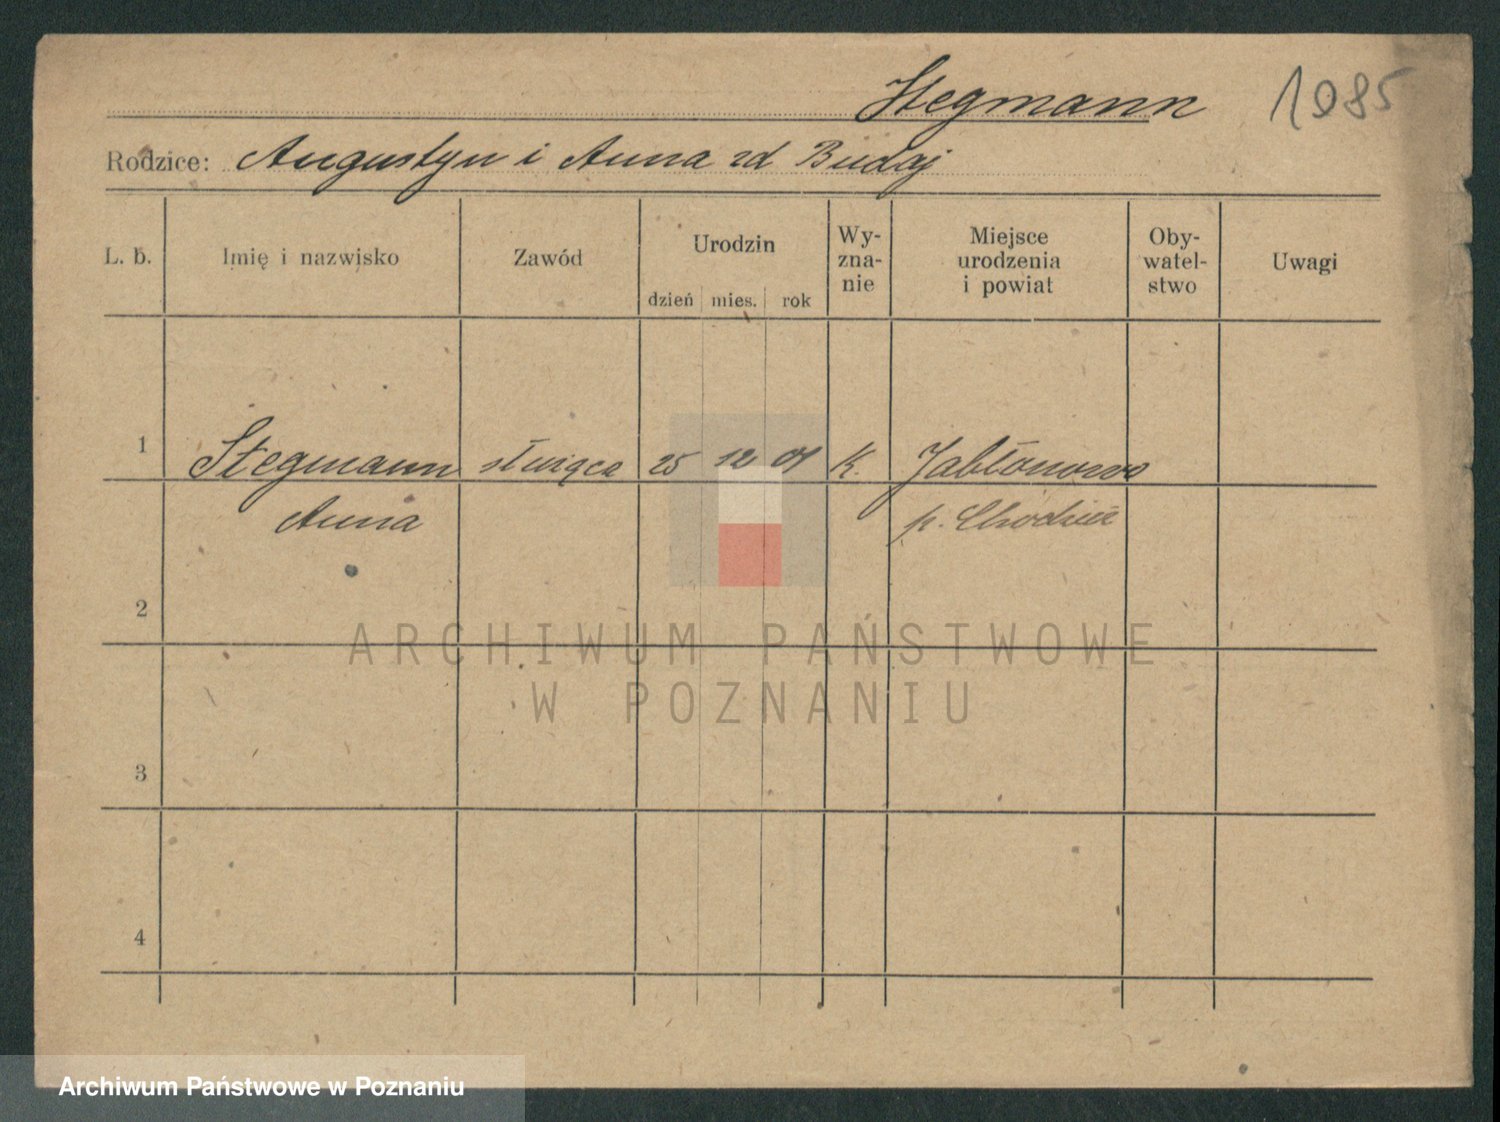 Stegmann 1085
Rodzice: Augustyn i Anna zd Budaj
L. b. Imię i nazwisko Zawód Urodzin dzień mies. rok Wy-zna-nie Miejsce urodzenia i powiat Oby-watel-stwo Uwagi
1 Stegmann służąca 25 12 01 K. Jabłonowo
Anna p. Chodzież
2
ARCHIWUM PAŃSTWOWE
W POZNANIU
3
4
Archiwum Państwowe w Poznaniu